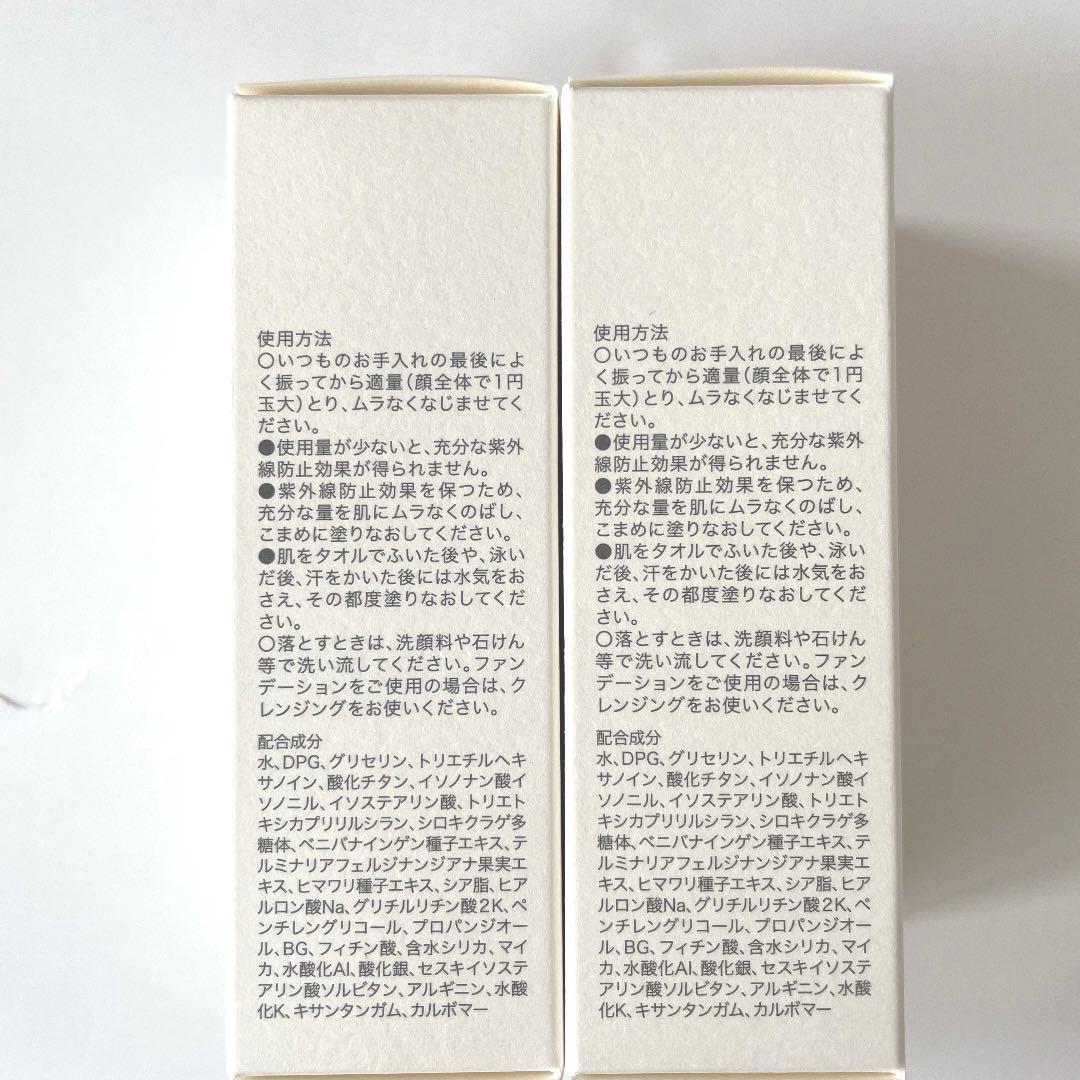 使用方法
○いつものお手入れの最後によ
く振ってから適量(顔全体で1円
玉大)とり、ムラなくなじませてく
ださい。
●使用量が少ないと、充分な紫外
線防止効果が得られません。
●紫外線防止効果を保つため、
充分な量を肌にムラなくのばし、
こまめに塗りなおしてください。
●肌をタオルでふいた後や、泳い
だ後、汗をかいた後には水気をお
さえ、その都度塗りなおしてくだ
さい。
○落とすときは、洗顔料や石けん
等で洗い流してください。ファン
デーションをご使用の場合は、ク
レンジングをお使いください。
配合成分
水、DPG、グリセリン、トリエチルヘキ
サノイン、酸化チタン、イソノナン酸イ
ソノニル、イソステアリン酸、トリエト
キシカプリリルシラン、シロキクラゲ多
糖体、ベニバナインゲン種子エキス、テ
ルミナリアフェルジナンジアナ果実エ
キス、ヒマワリ種子エキス、シア脂、ヒア
ルロン酸Na、グリチルリチン酸2K、ペ
ンチレングリコール、プロパンジオー
ル、BG、フィチン酸、含水シリカ、マイ
カ、水酸化Al、酸化銀、セスキイソステ
アリン酸ソルビタン、アルギニン、水酸
化K、キサンタンガム、カルボマー
使用方法
○いつものお手入れの最後によ
く振ってから適量(顔全体で1円
玉大)とり、ムラなくなじませてく
ださい。
●使用量が少ないと、充分な紫外
線防止効果が得られません。
●紫外線防止効果を保つため、
充分な量を肌にムラなくのばし、
こまめに塗りなおしてください。
●肌をタオルでふいた後や、泳い
だ後、汗をかいた後には水気をお
さえ、その都度塗りなおしてくだ
さい。
○落とすときは、洗顔料や石けん
等で洗い流してください。ファン
デーションをご使用の場合は、ク
レンジングをお使いください。
配合成分
水、DPG、グリセリン、トリエチルヘキ
サノイン、酸化チタン、イソノナン酸イ
ソノニル、イソステアリン酸、トリエト
キシカプリリルシラン、シロキクラゲ多
糖体、ベニバナインゲン種子エキス、テ
ルミナリアフェルジナンジアナ果実エ
キス、ヒマワリ種子エキス、シア脂、ヒア
ルロン酸Na、グリチルリチン酸2K、ペ
ンチレングリコール、プロパンジオー
ル、BG、フィチン酸、含水シリカ、マイ
カ、水酸化Al、酸化銀、セスキイソステ
アリン酸ソルビタン、アルギニン、水酸
化K、キサンタンガム、カルボマー